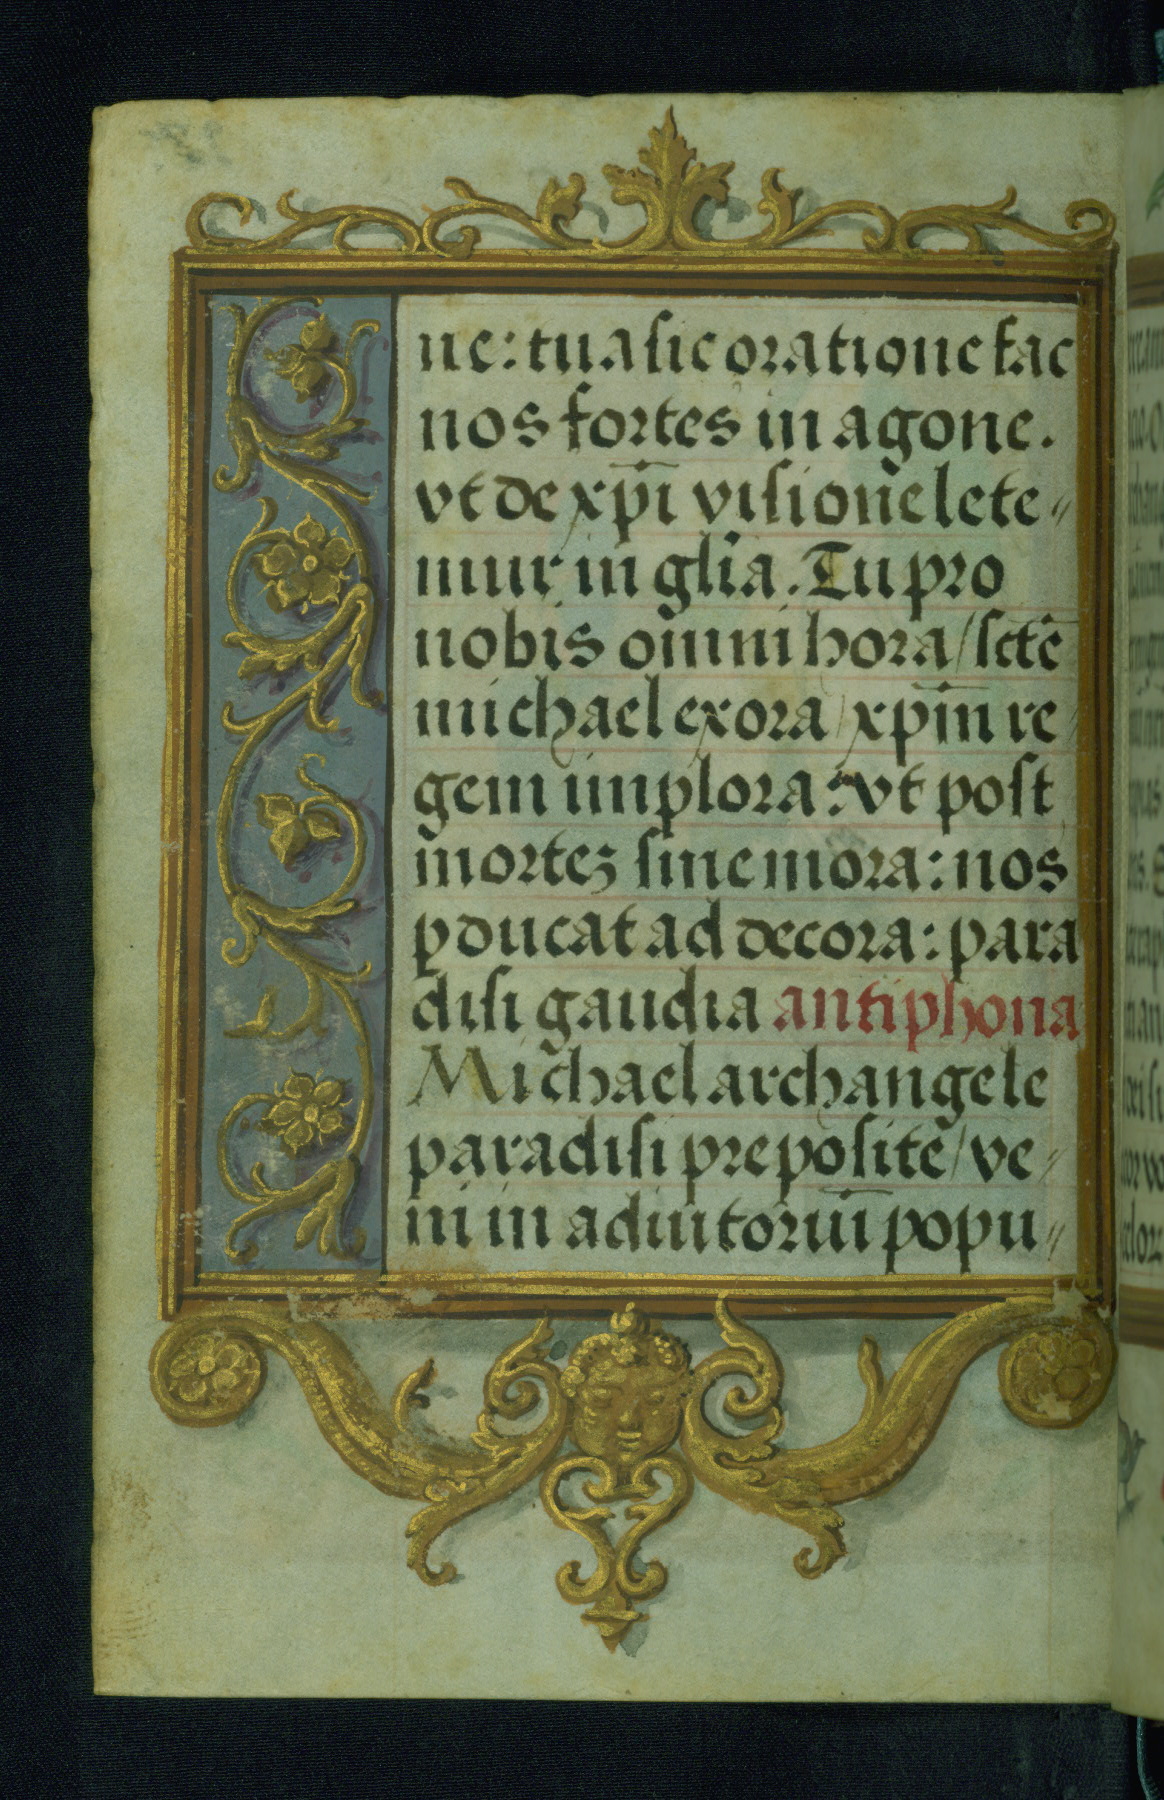 ne: tua sic oratione fac
nos fortes in agone.
vt de xp̄i visiōe lete
mur in gl̄ia. Tu pro
nobis omni hora / sctē
michael exora / xp̄m re
gem implora: vt post
mortez sine mora: nos
ꝑducat ad decora: para
disi gaudia antiphona
Michael archangele
paradisi preposite / ve
ni in adiutoriū popu